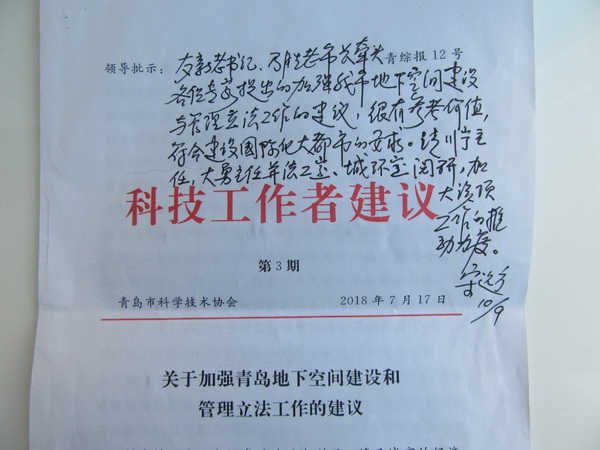 领导批示:
青综报12号
友新老书记、万胜老市长牵头
各位专家提出的加强我市地下空间建设
与管理立法工作的建议,很有参考价值,
符合建设国际化大都市的要求。请川宁主
任,大勇主任并法工室、城环室阅研,加
大该项
工作的推
动力度。
10/9
科技工作者建议
第3期
青岛市科学技术协会
2018年7月17日
关于加强青岛地下空间建设和
管理立法工作的建议